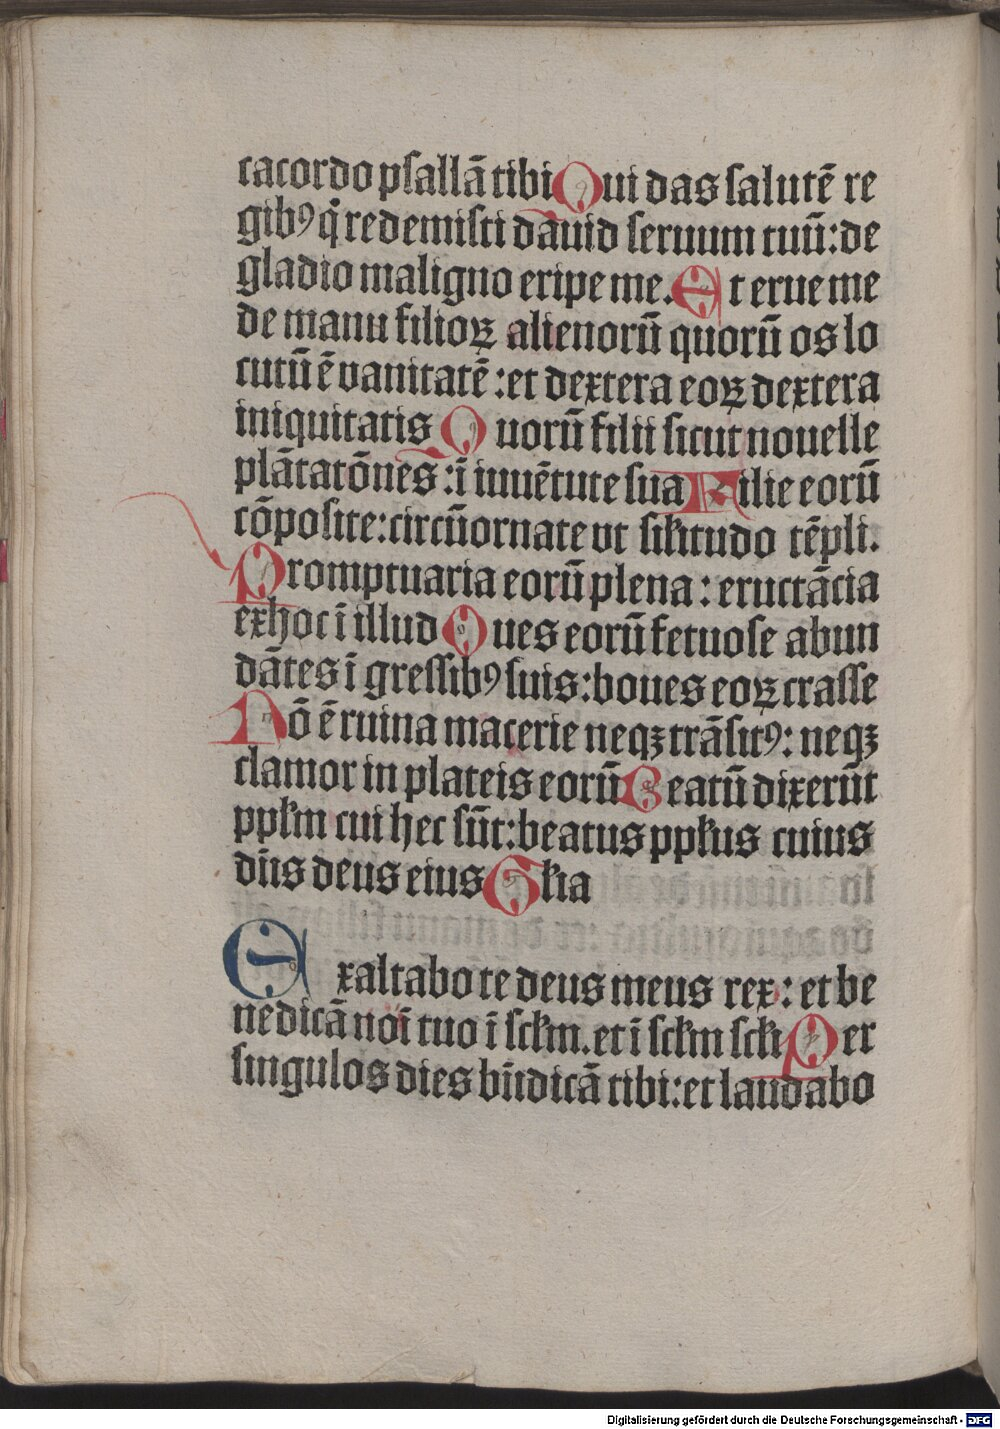 cacordo psallā tibi Qui das salutē re
gibꝰ q̇ redemisti dauid seruum tuū: de
gladio maligno eripe me. Et erue me
de manu filioꝝ alienorū quorū os lo
cutū ē vanitatē: et dextera eoꝝ dextera
iniquitatis Quorū filii sicut nouelle
plātatōnes: ī iuuētute sua Filie eorū
cōposite: circūornate vt silitudo tēpli.
Promptuaria eorū plena: eructācia
ex hoc ī illud Oues eorū fetuose abun
dātes ī gressibꝰ suis: boues eoꝝ crasse
Nō ē ruina macerie neqꝫ trāsitꝰ: neqꝫ
clamor in plateis eorū Beatū dixerūt
pplm cui hec sūt: beatus pplus cuius
dn̄s deus eius Glia
Exaltabo te deus meus rex: et be
nedicā noī tuo ī sclm. et ī sclm scli Per
singulos dies bn̄dicā tibi: et laudabo
Digitalisierung gefördert durch die Deutsche Forschungsgemeinschaft - DFG